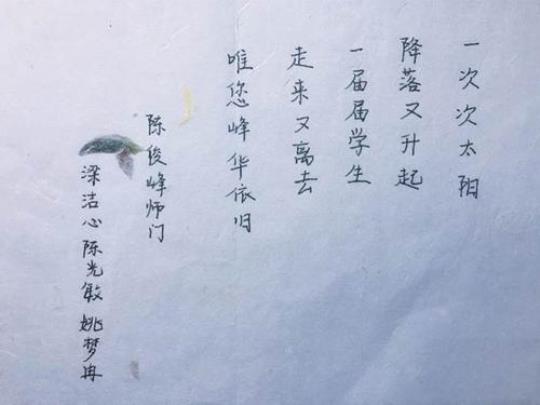 一次次太阳
降落又升起
一届届学生
走来又离去
唯您峰华依旧
陈俊峰师门
梁洁心陈光敏姚梦冉